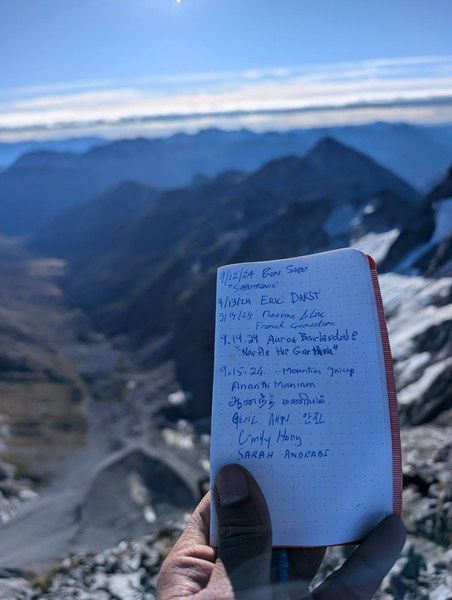 9/12/24 BEN SABO
"SABOTRONIC"
9/13/24 ERIC DARST
9/14/24 Maxime
French Connection
9.14.24 Aaron Barlasdale
"Narfle the Garthok"
9.15.24 - Mountain group
Ananth Maniam
ஆனந்த் மணியம்
GENE AHN 안진
Cindy Hong
SARAH ANDRABI